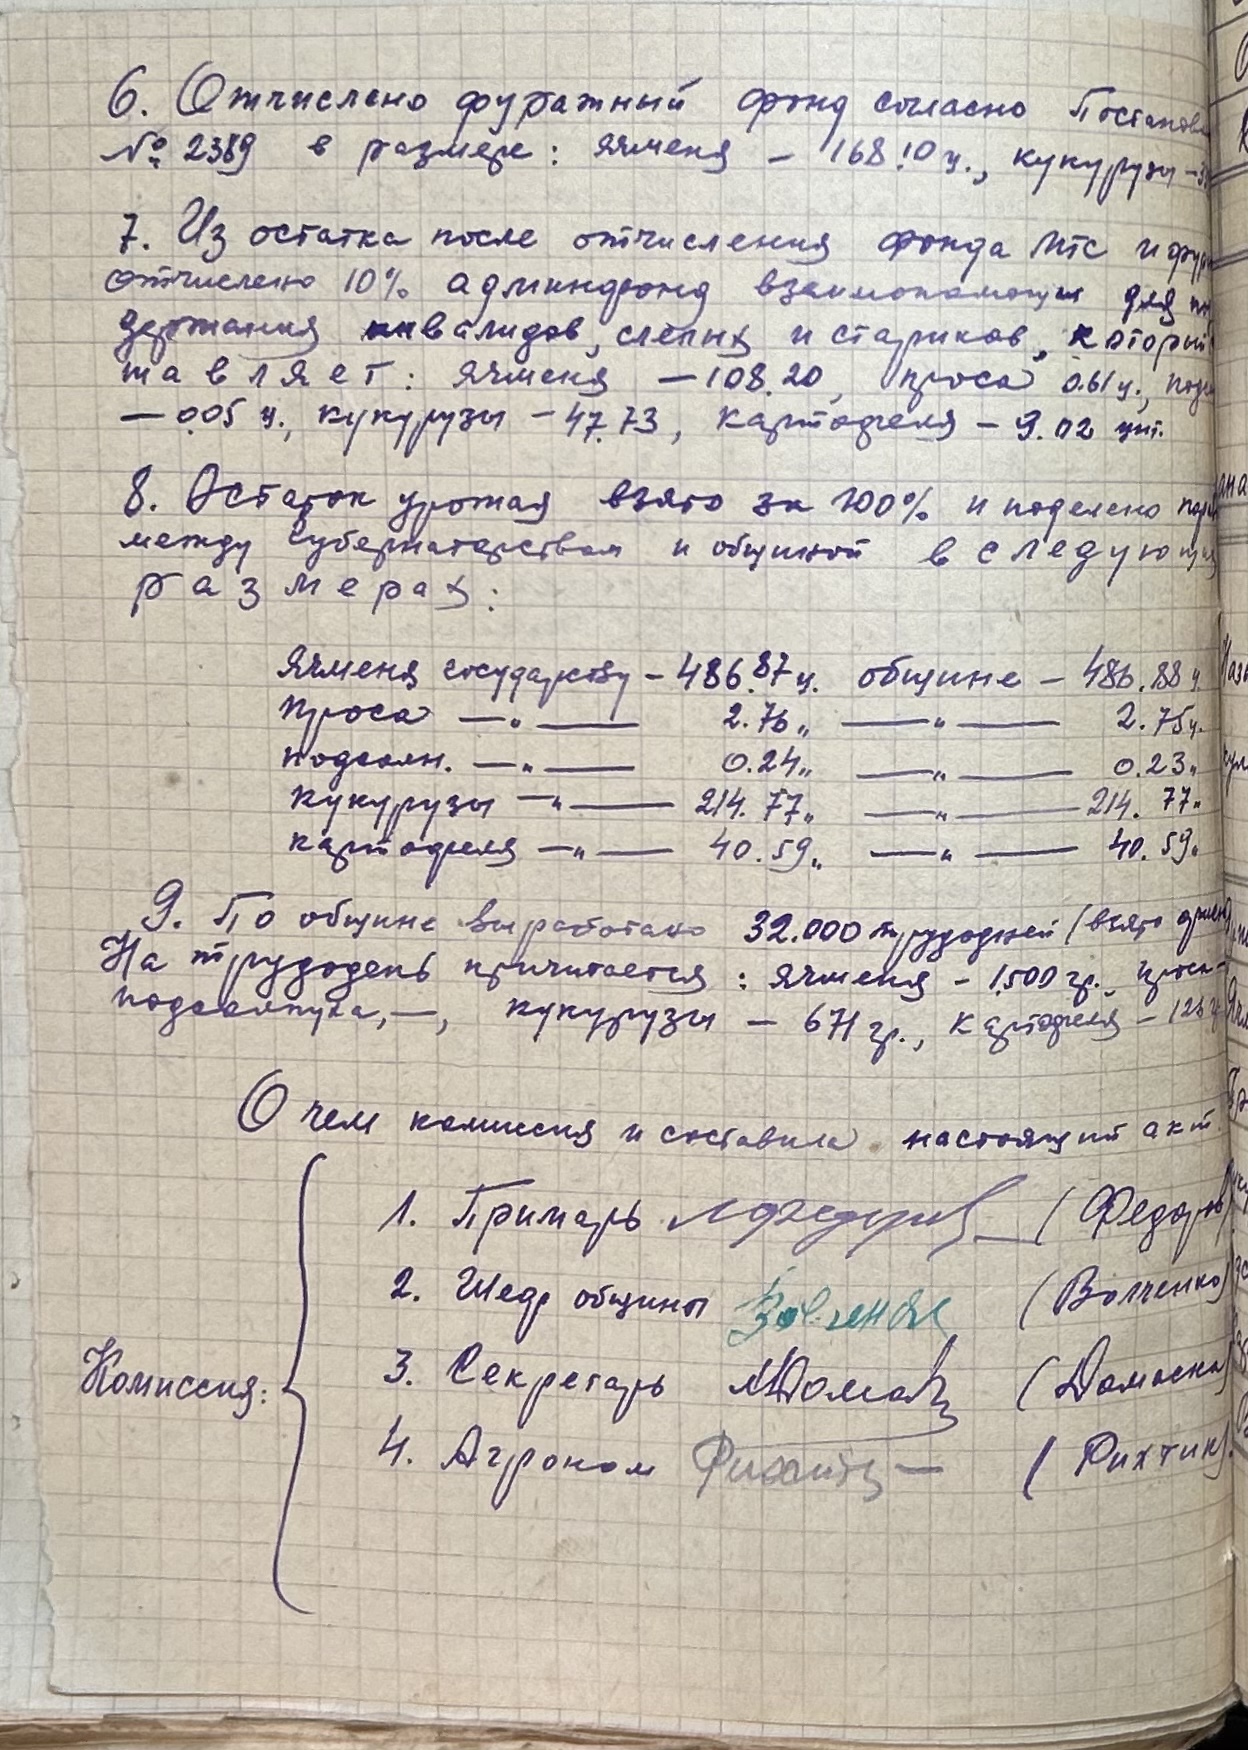 6. Отчислено фуражный фонд согласно Постанов
№ 2389 в размере: ячменя – 168.10 ц., кукурузы –
7. Из остатка после отчисления фонда МТС и фур
отчислено 10% админфонд взаимопомощи для по
держания инвалидов, слепых и стариков, который
тавляет: ячменя – 108.20, проса 0.61 ц., подс
– 0.05 ц., кукурузы – 47.73, картофеля – 9.02 цнт.
8. Остаток урожая взято за 100% и поделено
между губернаторством и общиной в следующих
размерах:
Ячменя государству – 486.87 ц. общине – 486.88 ц.
Проса —„— 2.76„ —„— 2.75 ц.
подсолн. —„— 0.24„ —„— 0.23„
кукурузы —„— 214.77„ —„— 214.77„
картофеля —„— 40.59„ —„— 40.59„
9. По общине выработано 32.000 трудодней (взято
На трудодень причитается: ячменя – 1.500 гр., проса –
подсолнуха, —, кукурузы – 671 гр., картофеля – 126 г
О чем комиссия и составила настоящий акт.
Комиссия:
1. Примарь (Федоров)
2. Шеф общины Волченко (Волченко)
3. Секретарь (Домоскан)
4. Агроном (Рихтик).